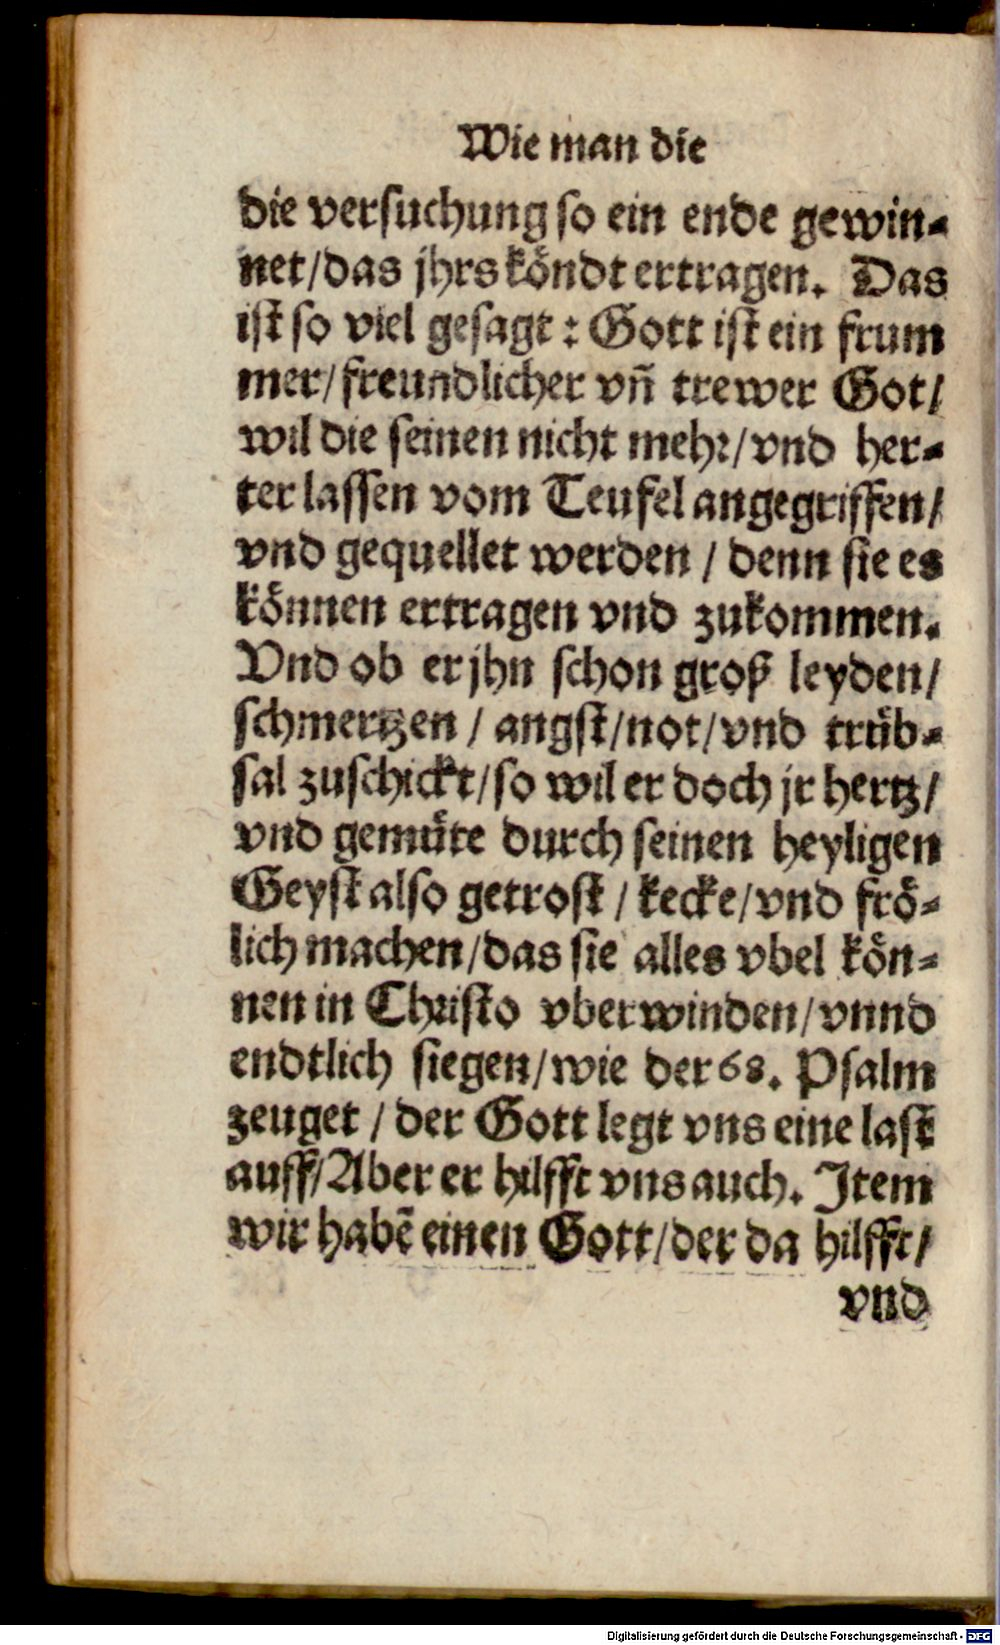 Wie man die
die versuchung so ein ende gewin⸗
net/das jhrs köndt ertragen. Das
ist so viel gesagt : Gott ist ein frum
mer/freundlicher vñ trewer Got/
wil die seinen nicht mehr/vnd her⸗
ter lassen vom Teufel angegriffen/
vnd gequellet werden / denn sie es
können ertragen vnd zukommen.
Vnd ob er jhn schon groß leyden/
schmertzen / angst/not/vnd trüb⸗
sal zuschickt/so wil er doch jr hertz/
vnd gemüte durch seinen heyligen
Geyst also getrost / kecke/vnd frö⸗
lich machen/das sie alles vbel kön⸗
nen in Christo vberwinden/vnnd
endtlich siegen/wie der 68. Psalm
zeuget / der Gott legt vns eine last
auff/Aber er hilfft vns auch. Item
wir habẽ einen Gott/der da hilfft/
vnd
Digitalisierung gefördert durch die Deutsche Forschungsgemeinschaft - DFG